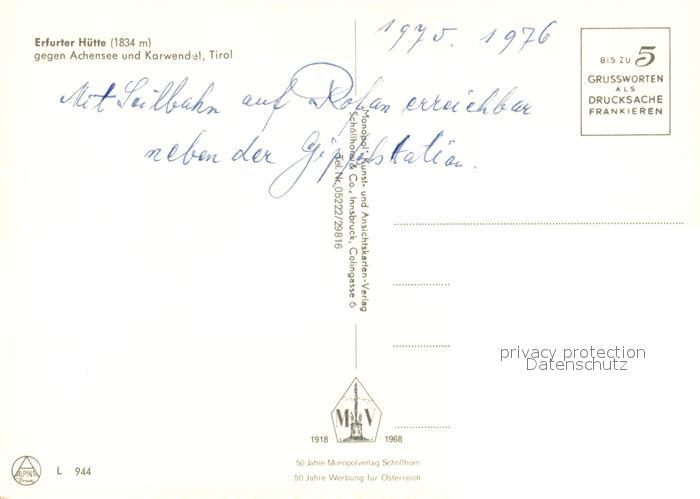 Erfurter Hütte (1834 m)
gegen Achensee und Karwendel, Tirol
1975. 1976
BIS ZU 5
GRUSSWORTEN
ALS
DRUCKSACHE
FRANKIEREN
Mit Seilbahn auf Rofan erreichbar
neben der Gipfelstation.
Monopol-, Kunst- und Ansichtskarten-Verlag
Schöllhorn & Co., Innsbruck, Colingasse 6
Tel. Nr. 05222/29816
privacy protection
Datenschutz
M V
1918 1968
50 Jahre Monopolverlag Schöllhorn
50 Jahre Werbung für Österreich
ALPINA
Druck
L 944